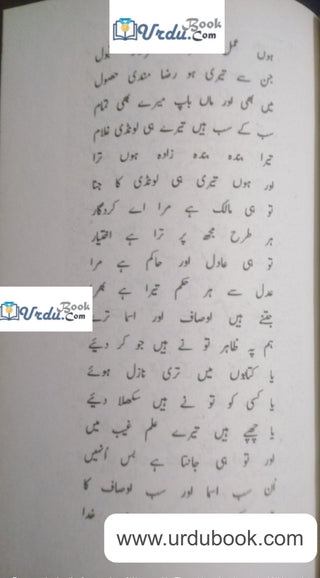 Urdu Book .Com
ہوں عمل
جن سے تیری ہو رضا مندی حصول
میں بھی اور ماں باپ میرے بھی تمام
سب کے سب ہیں تیرے ہی لونڈی غلام
تیرا بندہ بندہ زادہ ہوں ترا
اور ہوں تیری ہی لونڈی کا جنا
تو ہی مالک ہے مرا اے کردگار
ہر طرح مجھ پر ترا ہے اختیار
تو ہی عادل اور حاکم ہے مرا
عدل سے ہر حکم تیرا ہے بھرا
Urdu Book .Com
جتنے ہیں اوصاف اور اسما ترے
ہم پہ ظاہر تو نے ہیں جو کر دیئے
یا کتابوں میں تری نازل ہوئے
یا کسی کو تو نے ہیں سکھلا دیئے
یا چھپے ہیں تیرے علم غیب میں
اور تو ہی جانتا ہے بس اُنہیں
اُن سب اسما اور سب اوصاف کا
خدا
www.urdubook.com